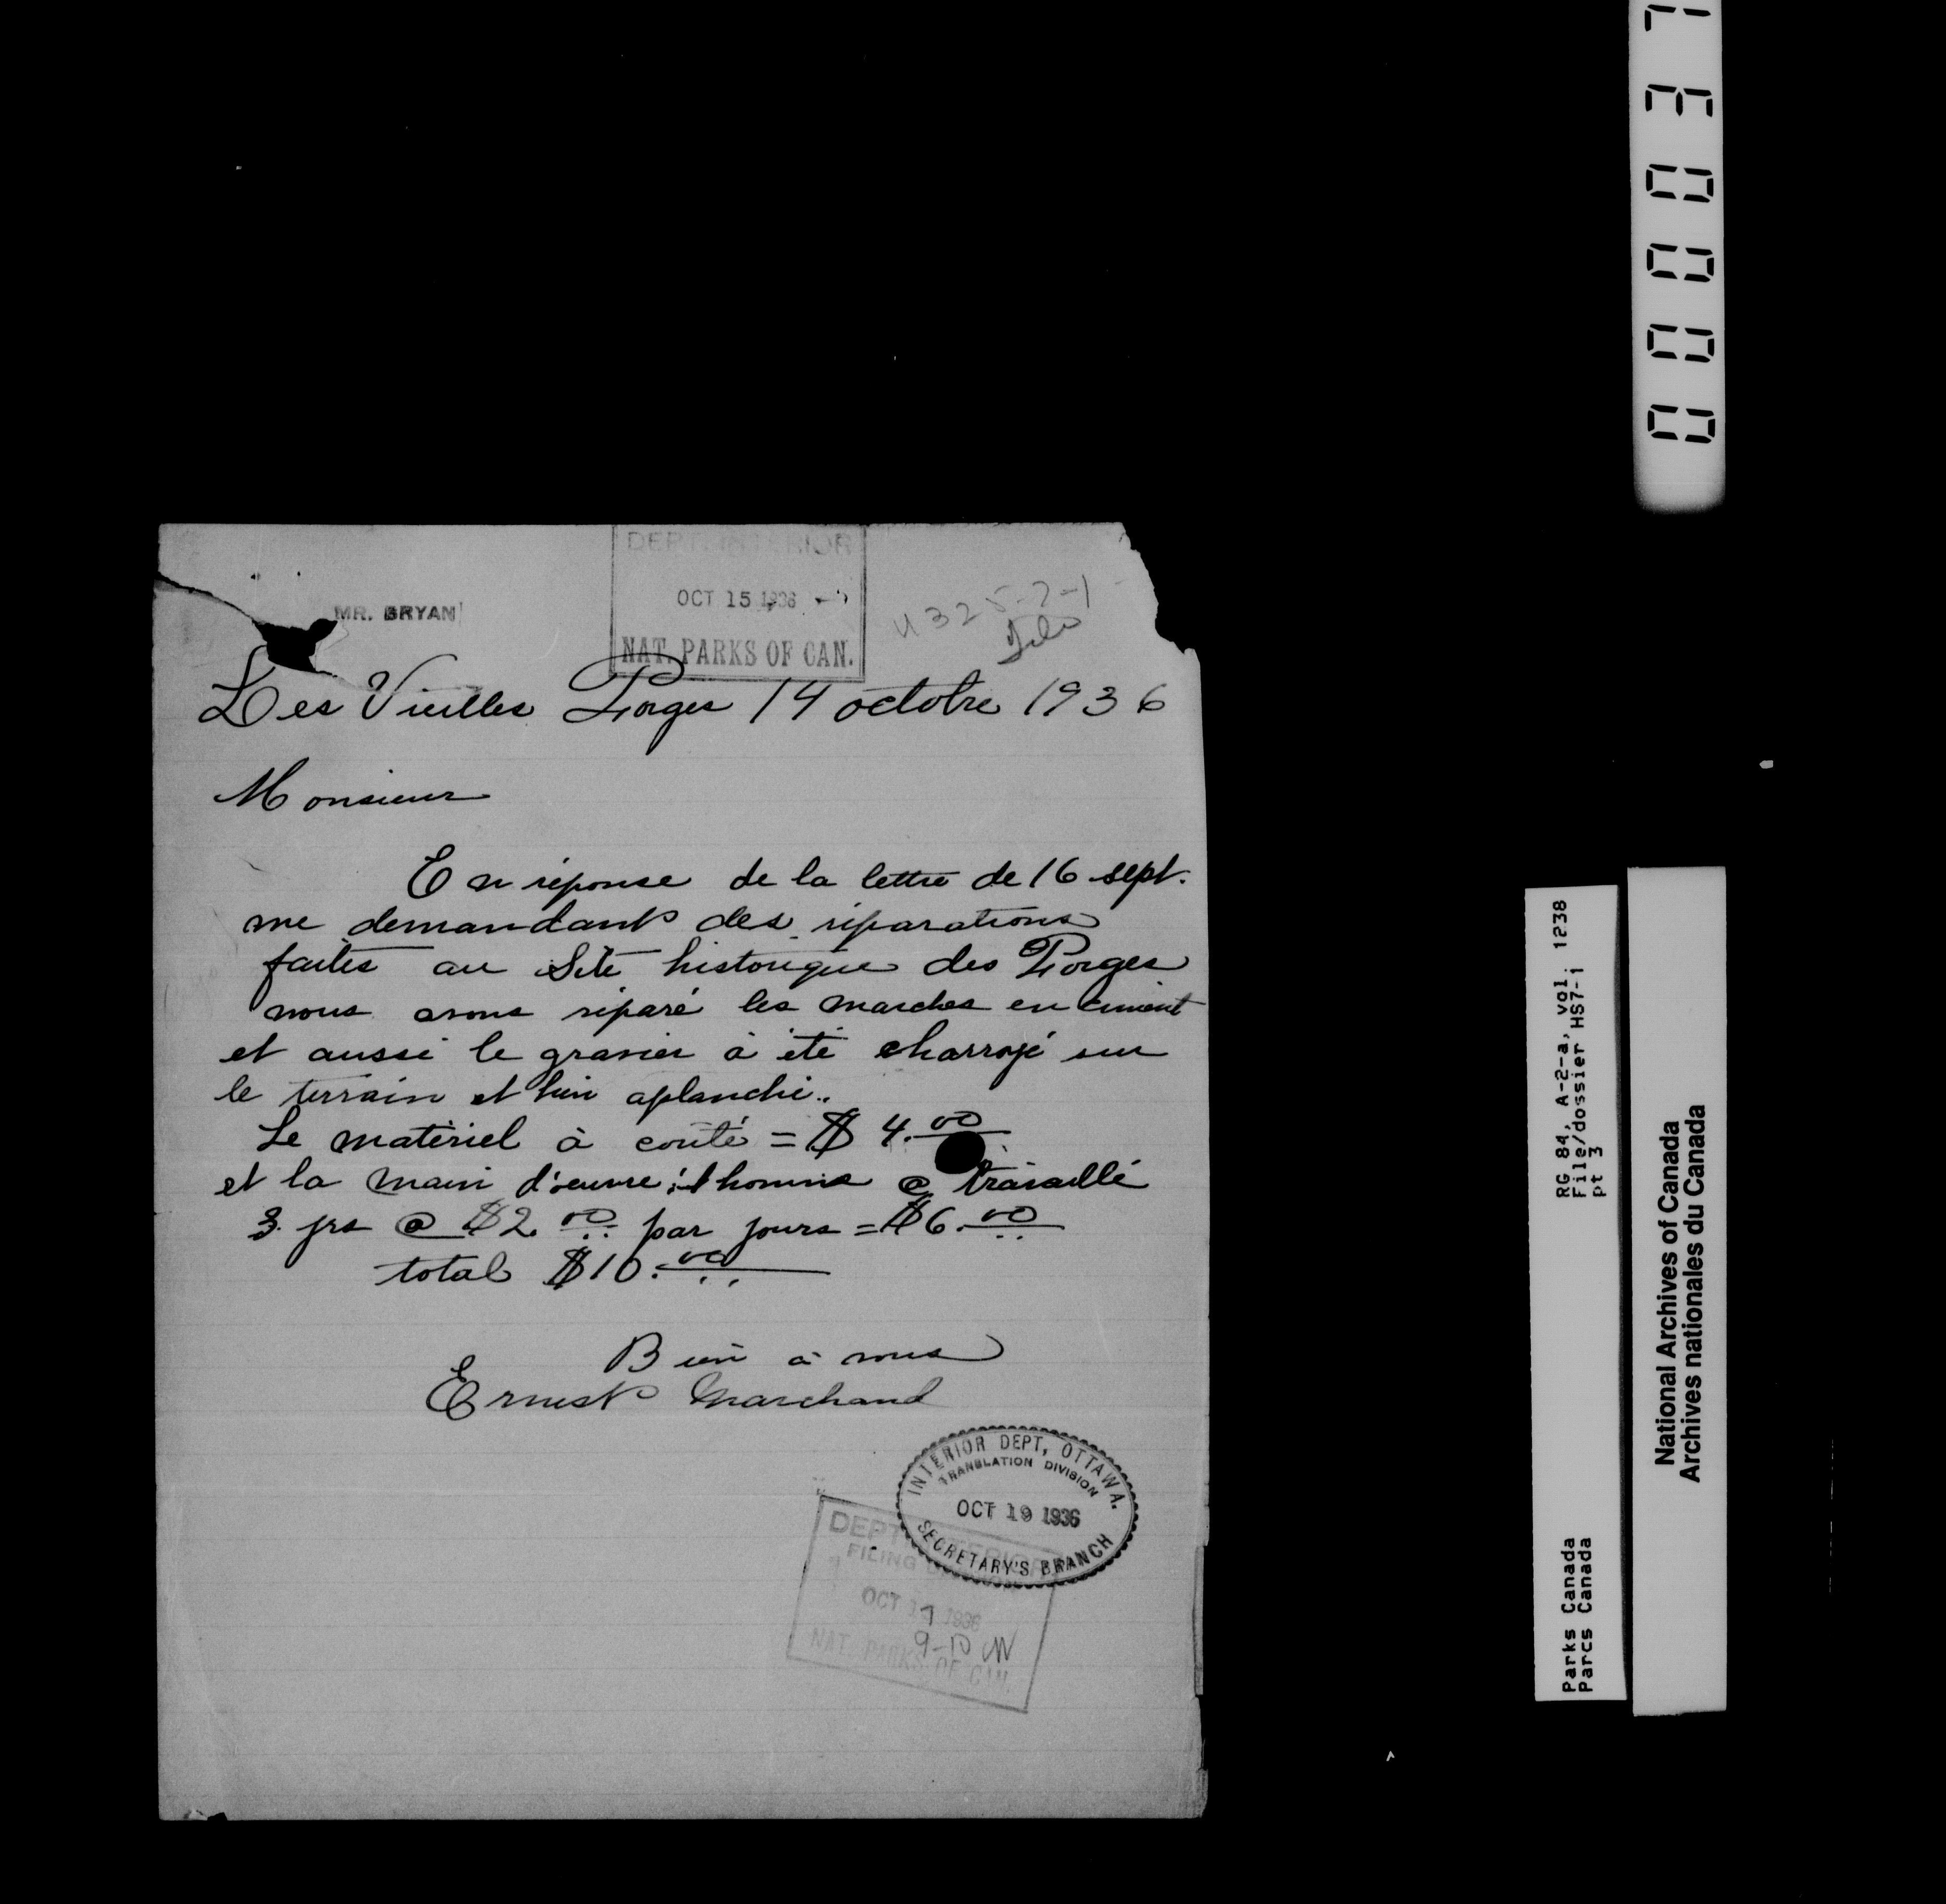 DEPT. INTERIOR
OCT 15 1936
NAT. PARKS OF CAN.
MR. BRYAN
U325-2-1
Les Vieilles Forges 14 octobre 1936
Monsieur
En réponse de la lettre de 16 sept.
me demandant des réparations
faites au Site historique des Forges
nous avons réparé les marches en ciment
et aussi le gravier à été charroyé sur
le terrain et bien aplanchi..
Le matériel à couté = $ 4.00
et la main d'oeuvre: 1 homme @ travaillé
3. jrs @ $2.00 par jours = $6.00
total $10.00
Bien à vous
Ernest Marchand
INTERIOR DEPT, OTTAWA.
TRANSLATION DIVISION
OCT 19 1936
SECRETARY'S BRANCH
DEPT. INTERIOR
FILING DIVISION
OCT 17 1936
9-10
NAT. PARKS OF CAN.
RG 84, A-2-a, vol. 1238
File/dossier HS7-1
pt 3
Parks Canada
Parcs Canada
National Archives of Canada
Archives nationales du Canada